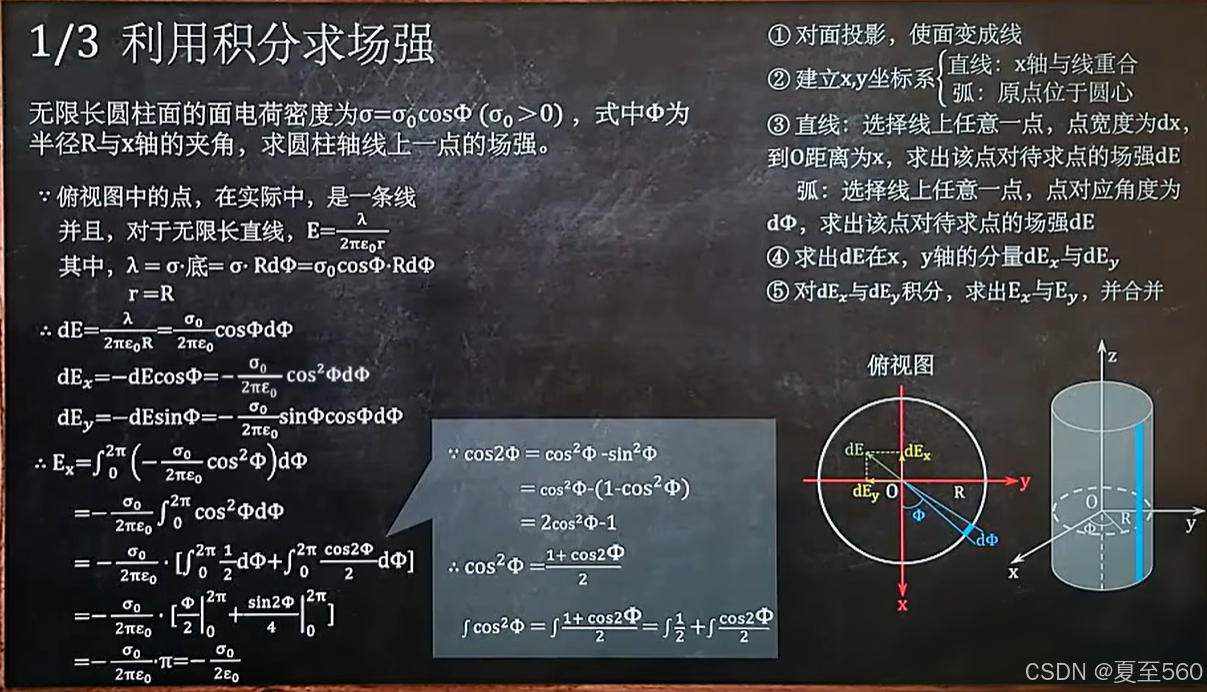 1/3 利用积分求场强
无限长圆柱面的面电荷密度为σ=σ₀cosΦ (σ₀>0) ，式中Φ为
半径R与x轴的夹角，求圆柱轴线上一点的场强。
∵ 俯视图中的点，在实际中，是一条线
并且，对于无限长直线，E=λ/2πε₀r
其中，λ = σ·底= σ· RdΦ=σ₀cosΦ·RdΦ
r =R
∴ dE=λ/2πε₀R=σ₀/2πε₀ cosΦdΦ
dEₓ=−dEcosΦ=−σ₀/2πε₀ cos²ΦdΦ
dE_y=−dEsinΦ=−σ₀/2πε₀ sinΦcosΦdΦ
∴ Eₓ=∫₀^2π (−σ₀/2πε₀ cos²Φ)dΦ
=−σ₀/2πε₀ ∫₀^2π cos²ΦdΦ
=−σ₀/2πε₀ · [∫₀^2π 1/2 dΦ+∫₀^2π cos2Φ/2 dΦ]
=−σ₀/2πε₀ · [Φ/2|₀^2π + sin2Φ/4|₀^2π ]
=−σ₀/2πε₀ ·π=−σ₀/2ε₀
∵ cos2Φ = cos²Φ -sin²Φ
= cos²Φ-(1-cos²Φ)
= 2cos²Φ-1
∴ cos²Φ =1+ cos2Φ/2
∫cos²Φ = ∫1+ cos2Φ/2 = ∫1/2 + ∫cos2Φ/2
① 对面投影，使面变成线
② 建立x,y坐标系{直线：x轴与线重合
弧：原点位于圆心
③ 直线：选择线上任意一点，点宽度为dx，
到O距离为x，求出该点对待求点的场强dE
弧：选择线上任意一点，点对应角度为
dΦ，求出该点对待求点的场强dE
④ 求出dE在x，y轴的分量dEₓ与dE_y
⑤ 对dEₓ与dE_y积分，求出Eₓ与E_y，并合并
俯视图
dE
dEₓ
dE_y
O
R
y
Φ
dΦ
x
z
O
R
Φ
y
x
CSDN @夏至560